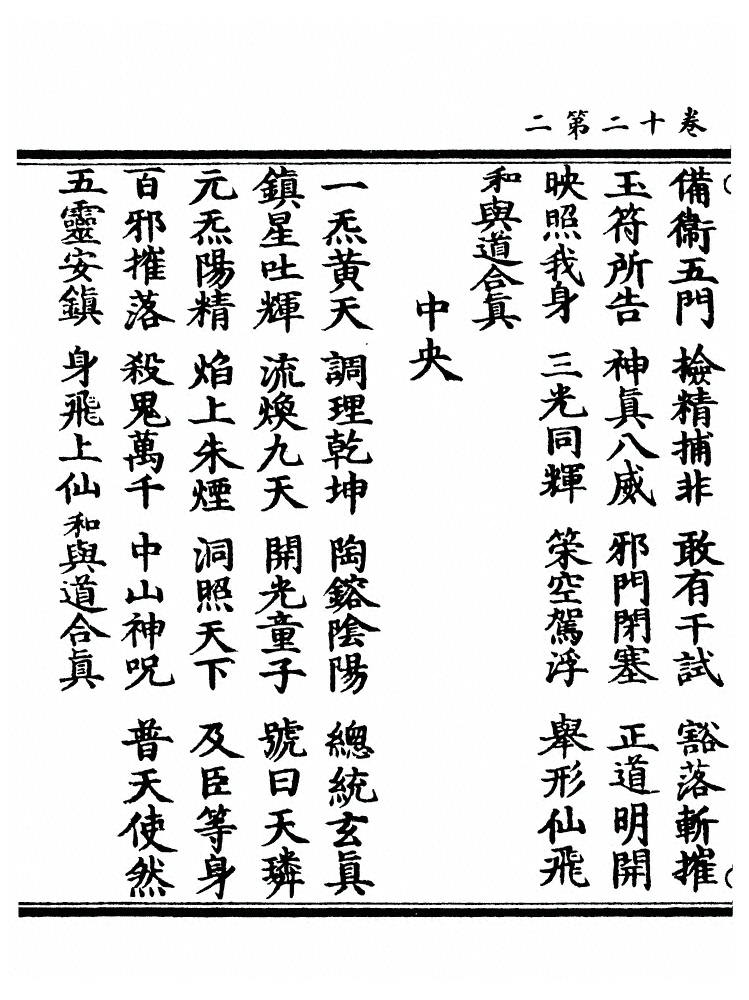 卷十二第二
備衞五門 檢精捕非 敢有干試 豁落斬摧
玉符所告 神眞八威 邪門閉塞 正道明開
映照我身 三光同輝 策空駕浮 舉形仙飛
和與道合眞
中央
一炁黄天 調理乾坤 陶鎔陰陽 總統玄眞
鎮星吐輝 流煥九天 開光童子 號曰天璘
元炁陽精 焰上朱煙 洞照天下 及臣等身
百邪摧落 殺鬼萬千 中山神呪 普天使然
五靈安鎮 身飛上仙 和與道合眞